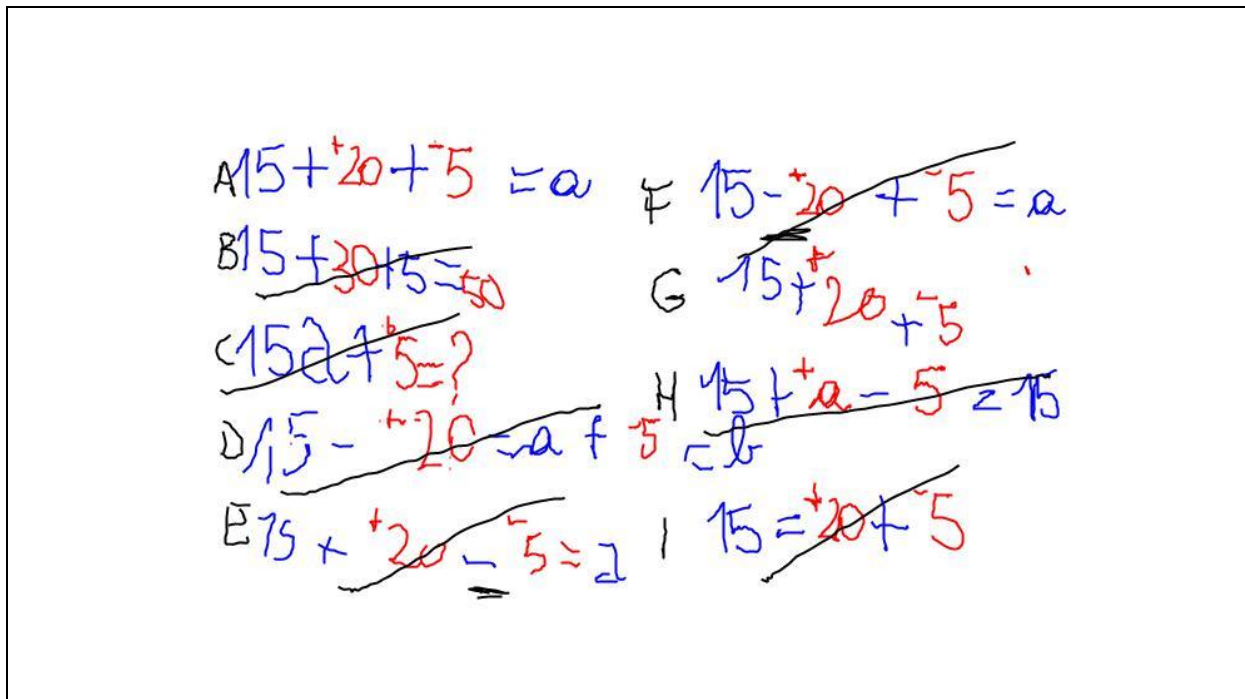 A 15 + ⁺20 + ⁻5 = a
B 15 + 30 + 5 = ⁺50
C 15 a + ⁺5 = ?
D 15 - ⁺20 = a + ⁻5 = b
E 15 + ⁺20 - ⁻5 = a
F 15 - ⁺20 + ⁻5 = a
G 15 + ⁺20 + ⁻5
H 15 + ⁺a - 5 = 15
I 15 = ⁺20 + ⁻5